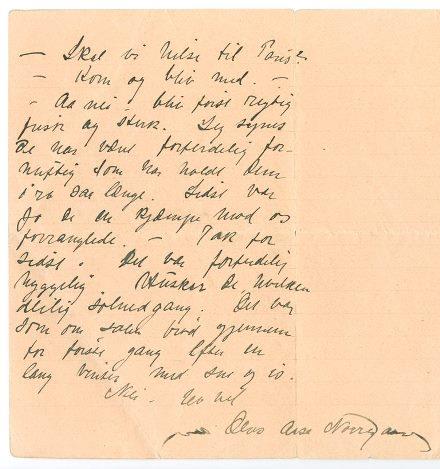 — Skal vi hilse til Paris?
— Kom og bliv med. —
- Aa nei, bliv først rigtig
frisk og sterk. Jeg synes
De har været forferdelig for-
nuftig som har holdt Dem
i ro saa længe. Sidst var
jo De en kjæmpe mod os
forvranglede. — Tak for
sidst. Det var forferdelig
hyggelig. Husker De hvilken
deilig solnedgang. Det var
som om solen brød gjennem
for første gang efter en
lang vinter med sne og is.
Nei - lev vel
Deres Aase Nørregaard